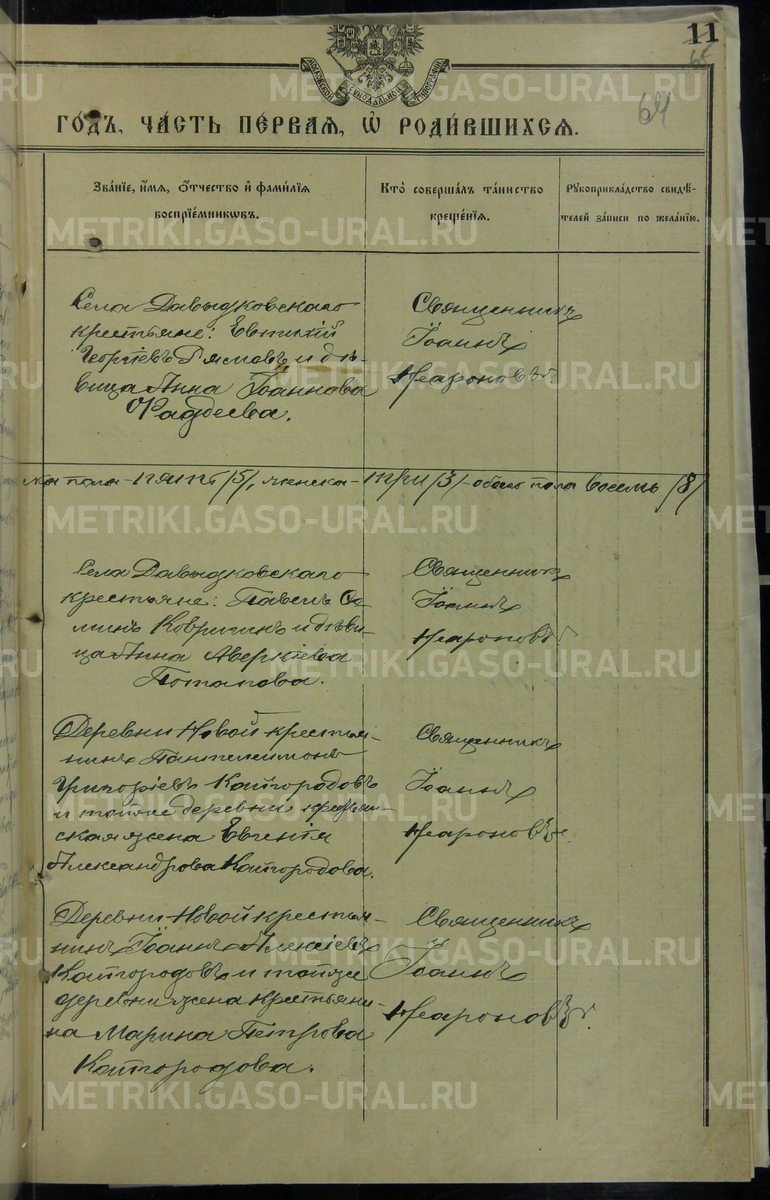 11
64
ГОДЪ, ЧАСТЬ ПЕРВАЯ, Ѡ РОДИВШИХСЯ.
Званіе, имя, отчество и фамилія
воспріемниковъ.
Кто совершалъ таинство
крещенія.
Рукоприкладство свидѣ-
телей записи по желанію.
Села Давыдковскаго
крестьяне: Евтихій
Георгіевъ и дѣ-
вица Анна Іоаннова
Фаддеева.
Священникъ
Іоаннъ
Неароновъ
пола - пять /5/, женска - три /3/ - обоего пола восемь /8/
Села Давыдковскаго
крестьяне: Павелъ Ѳо-
минъ Ковригинъ и дѣви-
ца Анна Аверкіева
Потапова.
Священникъ
Іоаннъ
Неароновъ
Деревни Новой крестья-
нинъ Пантелеимонъ
Григоріевъ Кайгородовъ
и тойже деревни крестьян-
ская жена Евгенія
Александрова Кайгородова.
Священникъ
Іоаннъ
Неароновъ
Деревни Новой крестья-
нинъ Іоаннъ Алексіевъ
Кайгородовъ и тойже
деревни жена крестьяни-
на Марина Петрова
Кайгородова.
Священникъ
Іоаннъ
Неароновъ
METRIKI.GASO-URAL.RU